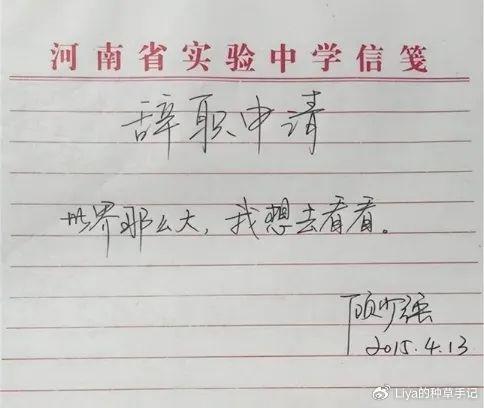 河南省实验中学信笺
辞职申请
世界那么大，我想去看看。
顾少强
2015.4.13
@Liya的种草手记